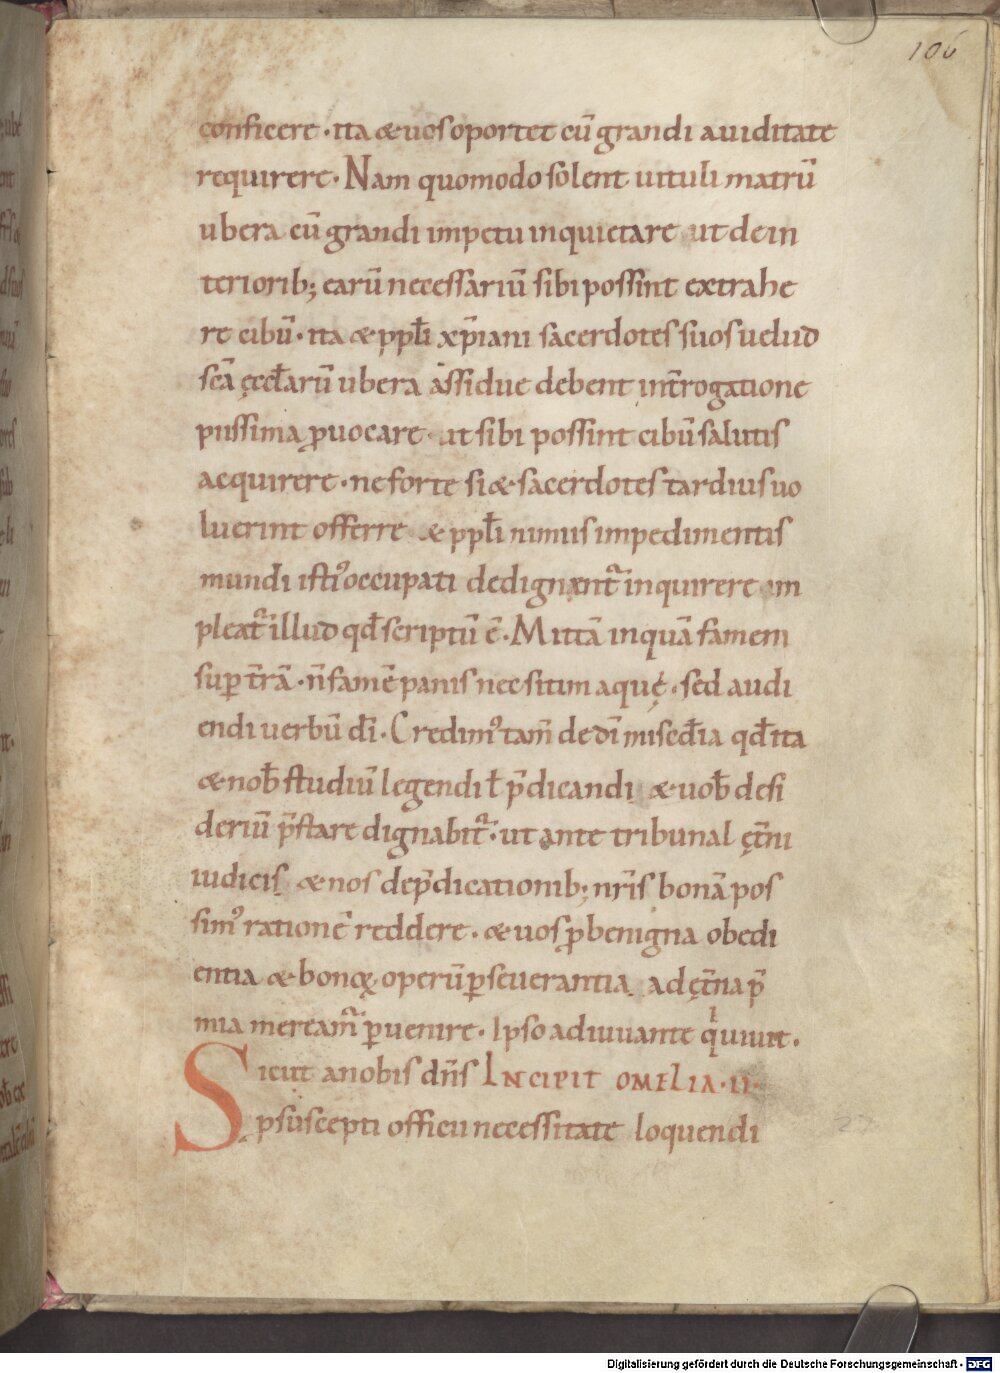 106
conficere · ita & uos oportet cū grandi auiditate
requirere · Nam quomodo solent uituli matrū
ubera cū grandi impetu inquietare ut de in
teriorib; earū necessariū sibi possint extrahe
re cibū · ita & ppl̄i xp̄iani sacerdotes suos uelud
sc̄a ęccl̄arū ubera assidue debent int̄rogatione
piissima ꝓuocare · ut sibi possint cibū salutis
acquirere · ne forte si & sacerdotes tardius uo
luerint offerre & ppl̄i nimiis impedimentis
mundi isti᾿ occupati dedignant᷑ inquirere im
pleat᷑ illud qd̄ scriptū ē · Mittā inquā famem
suꝑ t̄rā · n̄ famē panis nec sitim aquę · sed audi
endi uerbū dī · Credim᾿ tam̄ de dī mised̄ia qd̄ ita
& nob̄ studiū legendi ł p̄dicandi & uob̄ desi
deriū p̄stare dignabit᷑ · ut ante tribunal ęt̄ni
iudicis & nos de p̄dicationib; nr̄is bonā pos
sim᾿ rationē reddere · & uos ꝓ benigna obedi
entia & bonoꝝ operū ꝑseuerantia ad ęt̄na p̄
mia meream᷑ ꝑuenire · Ipso adiuuante qͥ uiuit .
Sicut a nobis dn̄s INCIPIT OMELIA · II ·
ꝓ suscepti officii necessitate loquendi
27
Digitalisierung gefördert durch die Deutsche Forschungsgemeinschaft - DFG